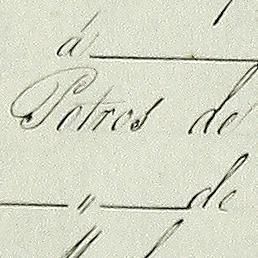 á
Potros de
" de